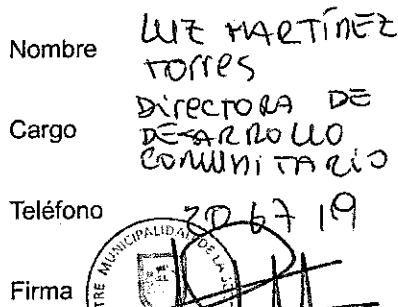 Nombre LUZ MARTÍNEZ
TORRES
Cargo DIRECTORA DE
DESARROLLO
COMUNITARIO
Teléfono 20 67 19
MUNICIPALIDAD DE LA
Firma